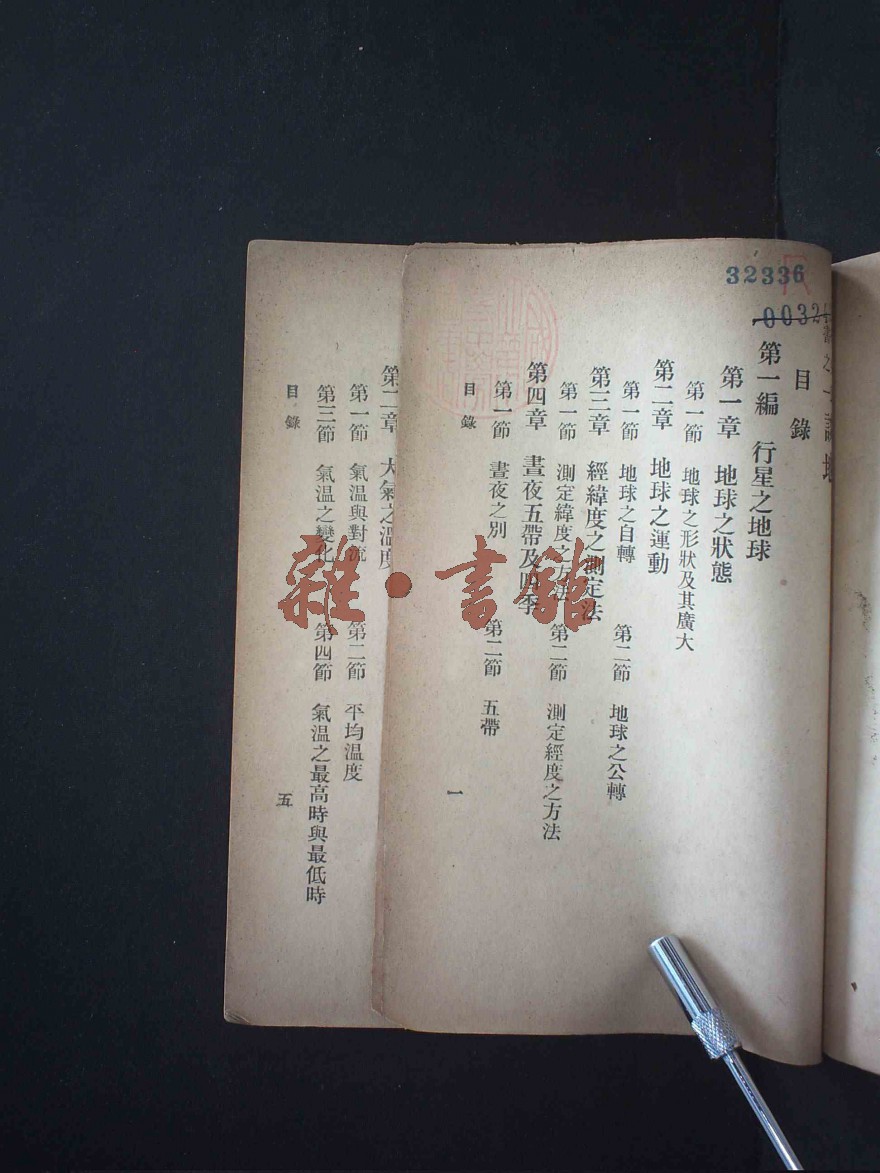 32336
0032
目錄
第一編 行星之地球
第一章 地球之狀態
第一節 地球之形狀及其廣大
第二章 地球之運動
第一節 地球之自轉 第二節 地球之公轉
第三章 經緯度之測定法
第一節 測定緯度之方法 第二節 測定經度之方法
第四章 晝夜五帶及四季
第一節 晝夜之別 第二節 五帶
目錄 一
第二章 大氣之溫度
第一節 氣溫與對流 第二節 平均溫度
第三節 氣溫之變化 第四節 氣溫之最高時與最低時
目錄 五
雜·書館